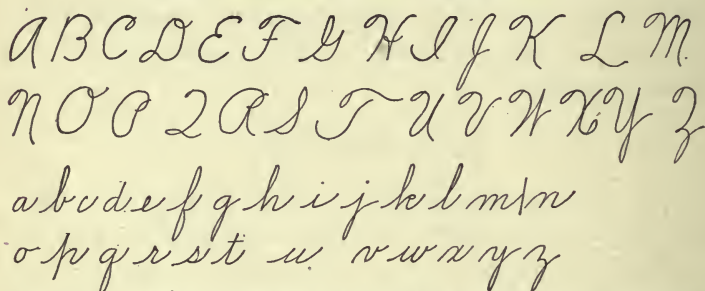 A B C D E F G H I J K L M
N O P Q R S T U V W X Y Z
a b c d e f g h i j k l m n
o p q r s t u v w x y z